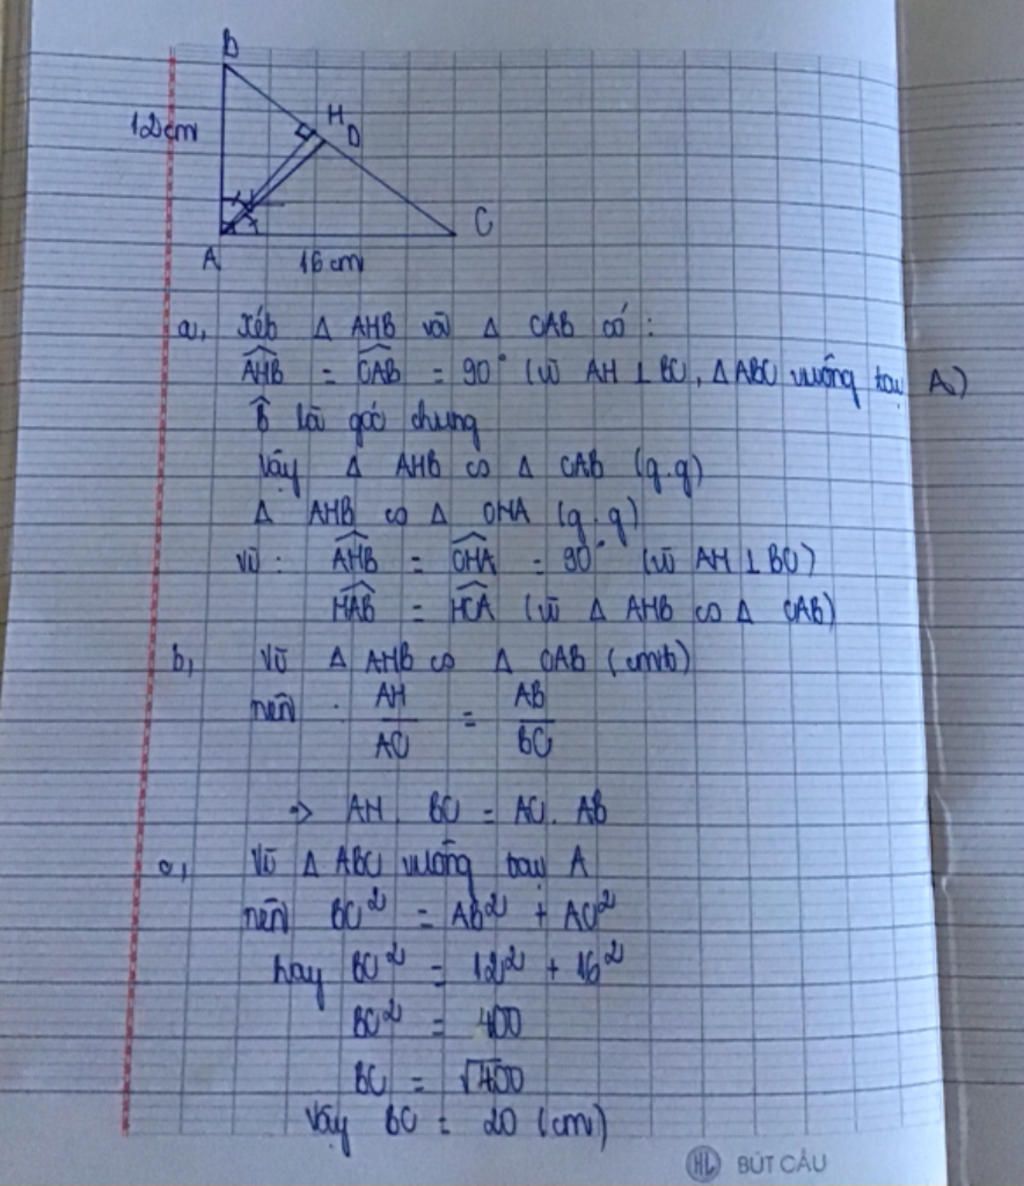 B
12cm
H
D
A
16 cm
C
a, Xét Δ AHB và Δ CAB có :
AHB = CAB = 90° (vì AH ⊥ BC, Δ ABC vuông tại A)
B là góc chung
Vậy Δ AHB ∽ Δ CAB (g.g)
Δ AHB ∽ Δ CHA (g.g)
Vì : AHB = CHA = 90° (vì AH ⊥ BC)
HAB = HCA (vì Δ AHB ∽ Δ CAB)
b, Vì Δ AHB ∽ Δ CAB (cmt)
nên : AH/AC = AB/BC
=> AH. BC = AC. AB
c, Vì Δ ABC vuông tại A
nên BC² = AB² + AC²
hay BC² = 12² + 16²
BC² = 400
BC = √400
Vậy BC = 20 (cm)
HL BÚT CÂU